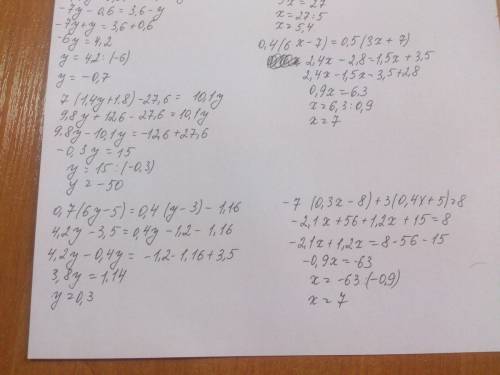 -7y - 0,6 = 3,6 - y
-7y + y = 3,6 + 0,6
-6y = 4,2
y = 42 : (-6)
y = -0,7
7 (1,4y + 1,8) - 27,6 = 10,1y
9,8y + 12,6 - 27,6 = 10,1y
9,8y - 10,1y = -12,6 + 27,6
-0,3y = 15
y = 15 : (-0,3)
y = -50
0,7(6y - 5) = 0,4 (y - 3) - 1,16
4,2y - 3,5 = 0,4y - 1,2 - 1,16
4,2y - 0,4y = -1,2 - 1,16 + 3,5
3,8y = 1,14
y = 0,3
x = 27 : 5
x = 5,4
0,4(6x - 7) = 0,5(3x + 7)
2,4x - 2,8 = 1,5x + 3,5
2,4x - 1,5x - 3,5 + 2,8
0,9x = 6,3
x = 6,3 : 0,9
x = 7
-7 (0,3x - 8) + 3(0,4x + 5) = 8
-2,1x + 56 + 1,2x + 15 = 8
-2,1x + 1,2x = 8 - 56 - 15
-0,9x = -63
x = -63 : (-0,9)
x = 7